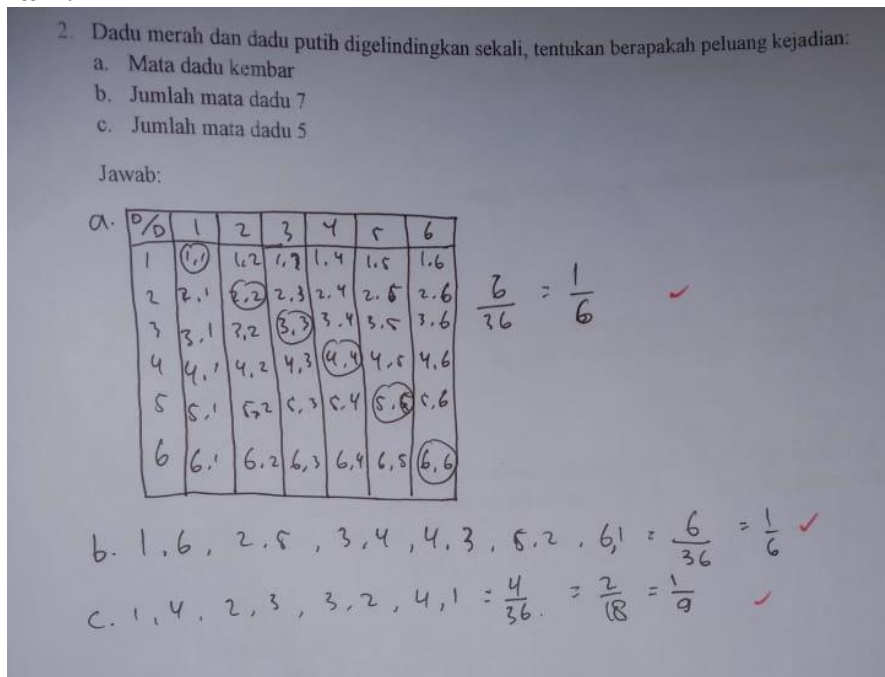 2. Dadu merah dan dadu putih digelindingkan sekali, tentukan berapakah peluang kejadian:
a. Mata dadu kembar
b. Jumlah mata dadu 7
c. Jumlah mata dadu 5
Jawab:
a. D/D 1 2 3 4 5 6
1 1,1 1,2 1,3 1.4 1.5 1.6
2 2.1 2,2 2.3 2.4 2.5 2.6
3 3,1 3,2 3,3 3.4 3.5 3.6
4 4,1 4,2 4,3 4,4 4,5 4,6
5 5,1 5,2 5,3 5.4 5.5 5,6
6 6.1 6.2 6,3 6,4 6,5 6,6
6/36 = 1/6
b. 1,6, 2.5, 3,4, 4.3, 5.2, 6,1 = 6/36 = 1/6
c. 1,4, 2,3, 3,2, 4,1 = 4/36. = 2/18 = 1/9